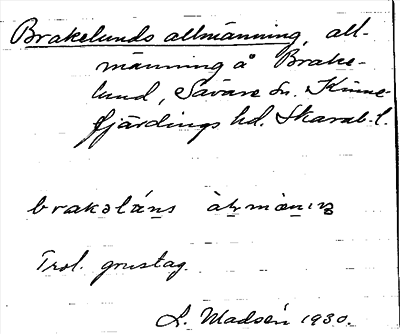 Brakelunds allmänning, all-
männing å Brake-
lund, Sävare sn. Kinne-
fjärdings hd. Skarab. l.
brakəláns àḷmæniŋ
Trol. grustag.
L. Madsén 1930.